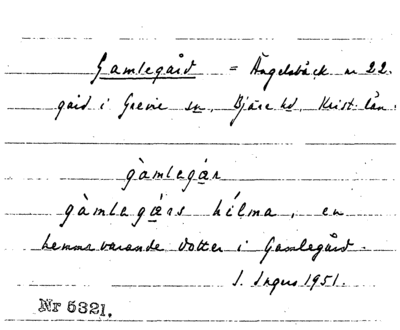 Gamlegård = Ängelsbäck nr 22.
gård i Grevie sn, Bjäre hd, Krist. län.
gàmlegár
gàmlegárs hélma, en
hemmavarande dotter i Gamlegård.
I. Ingers 1951.
Nr 6321.